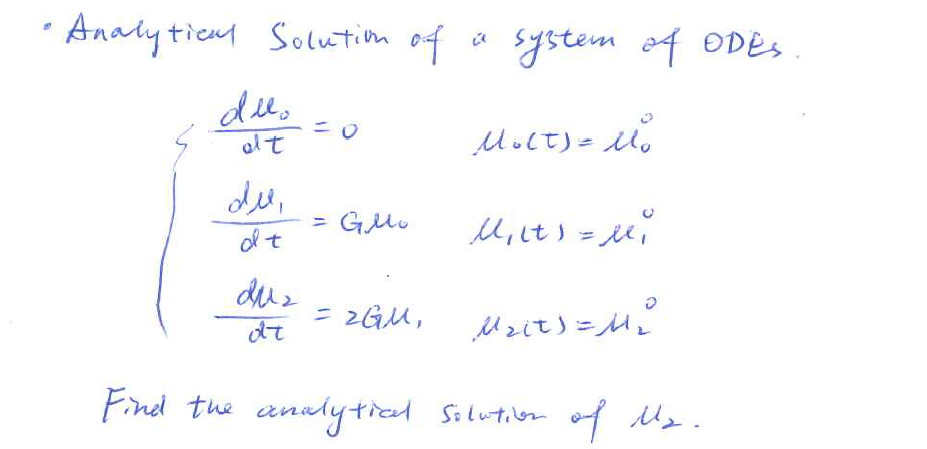 • Analytical Solution of a system of ODEs.
dμ₀/dt = 0    μ₀(t) = μ₀⁰
dμ₁/dt = Gμ₀    μ₁(t) = μ₁⁰
dμ₂/dt = 2Gμ₁    μ₂(t) = μ₂⁰
Find the analytical solution of μ₂.